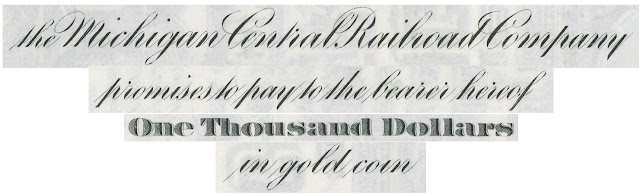 the Michigan Central Railroad Company
promises to pay to the bearer hereof
One Thousand Dollars
in gold coin